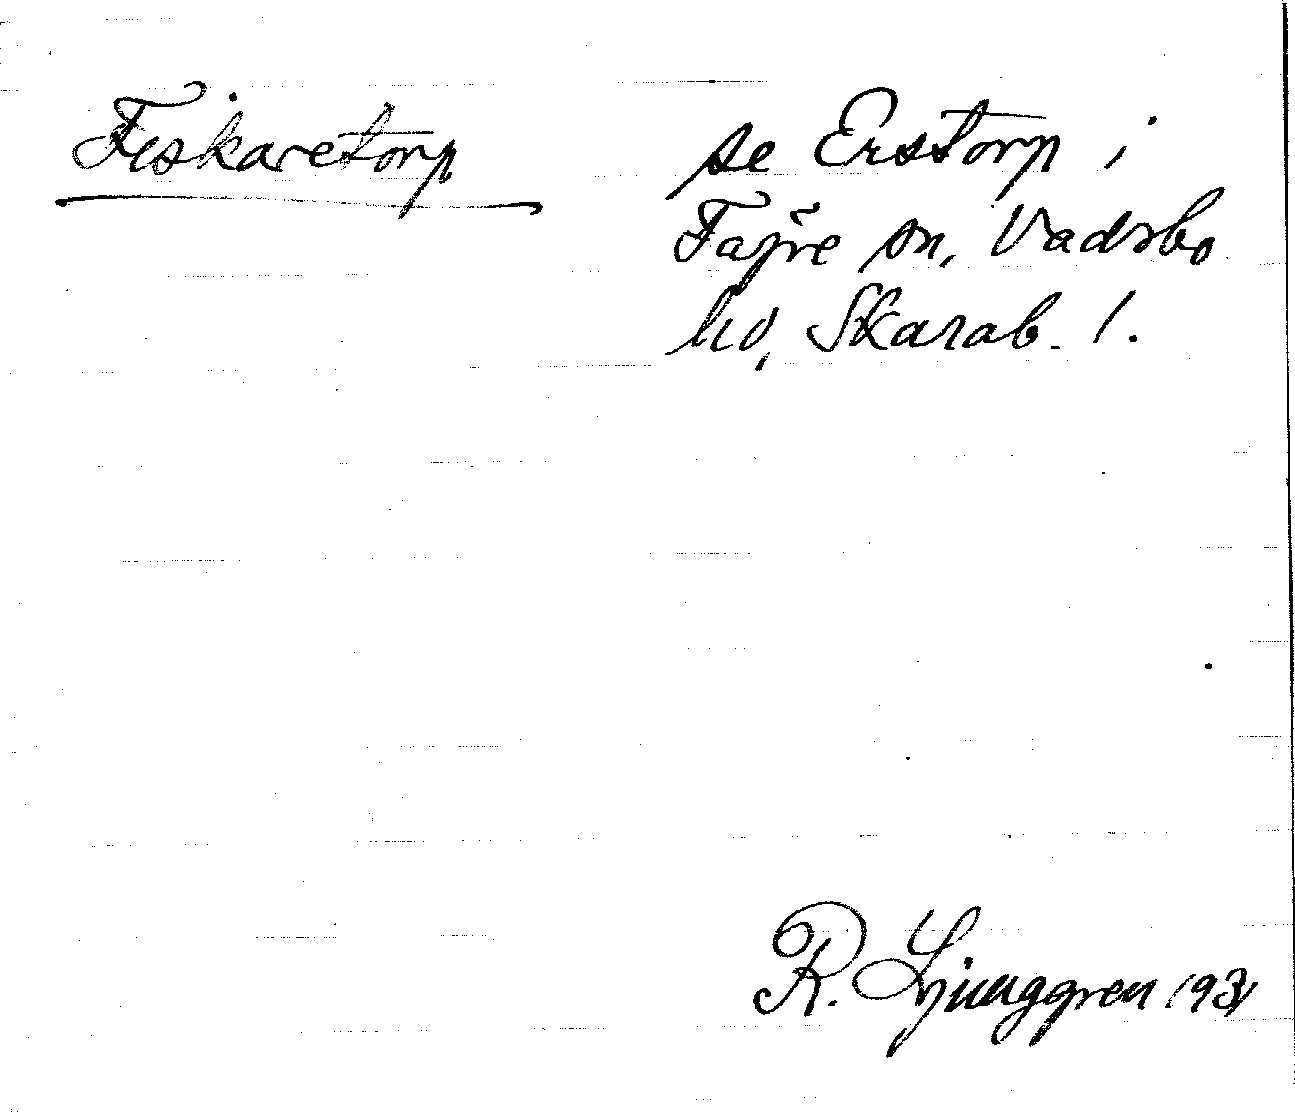 Fiskaretorp
se Erstorp i
Fägre sn, Vadsbo
hd, Skarab. l.
R. Ljunggren